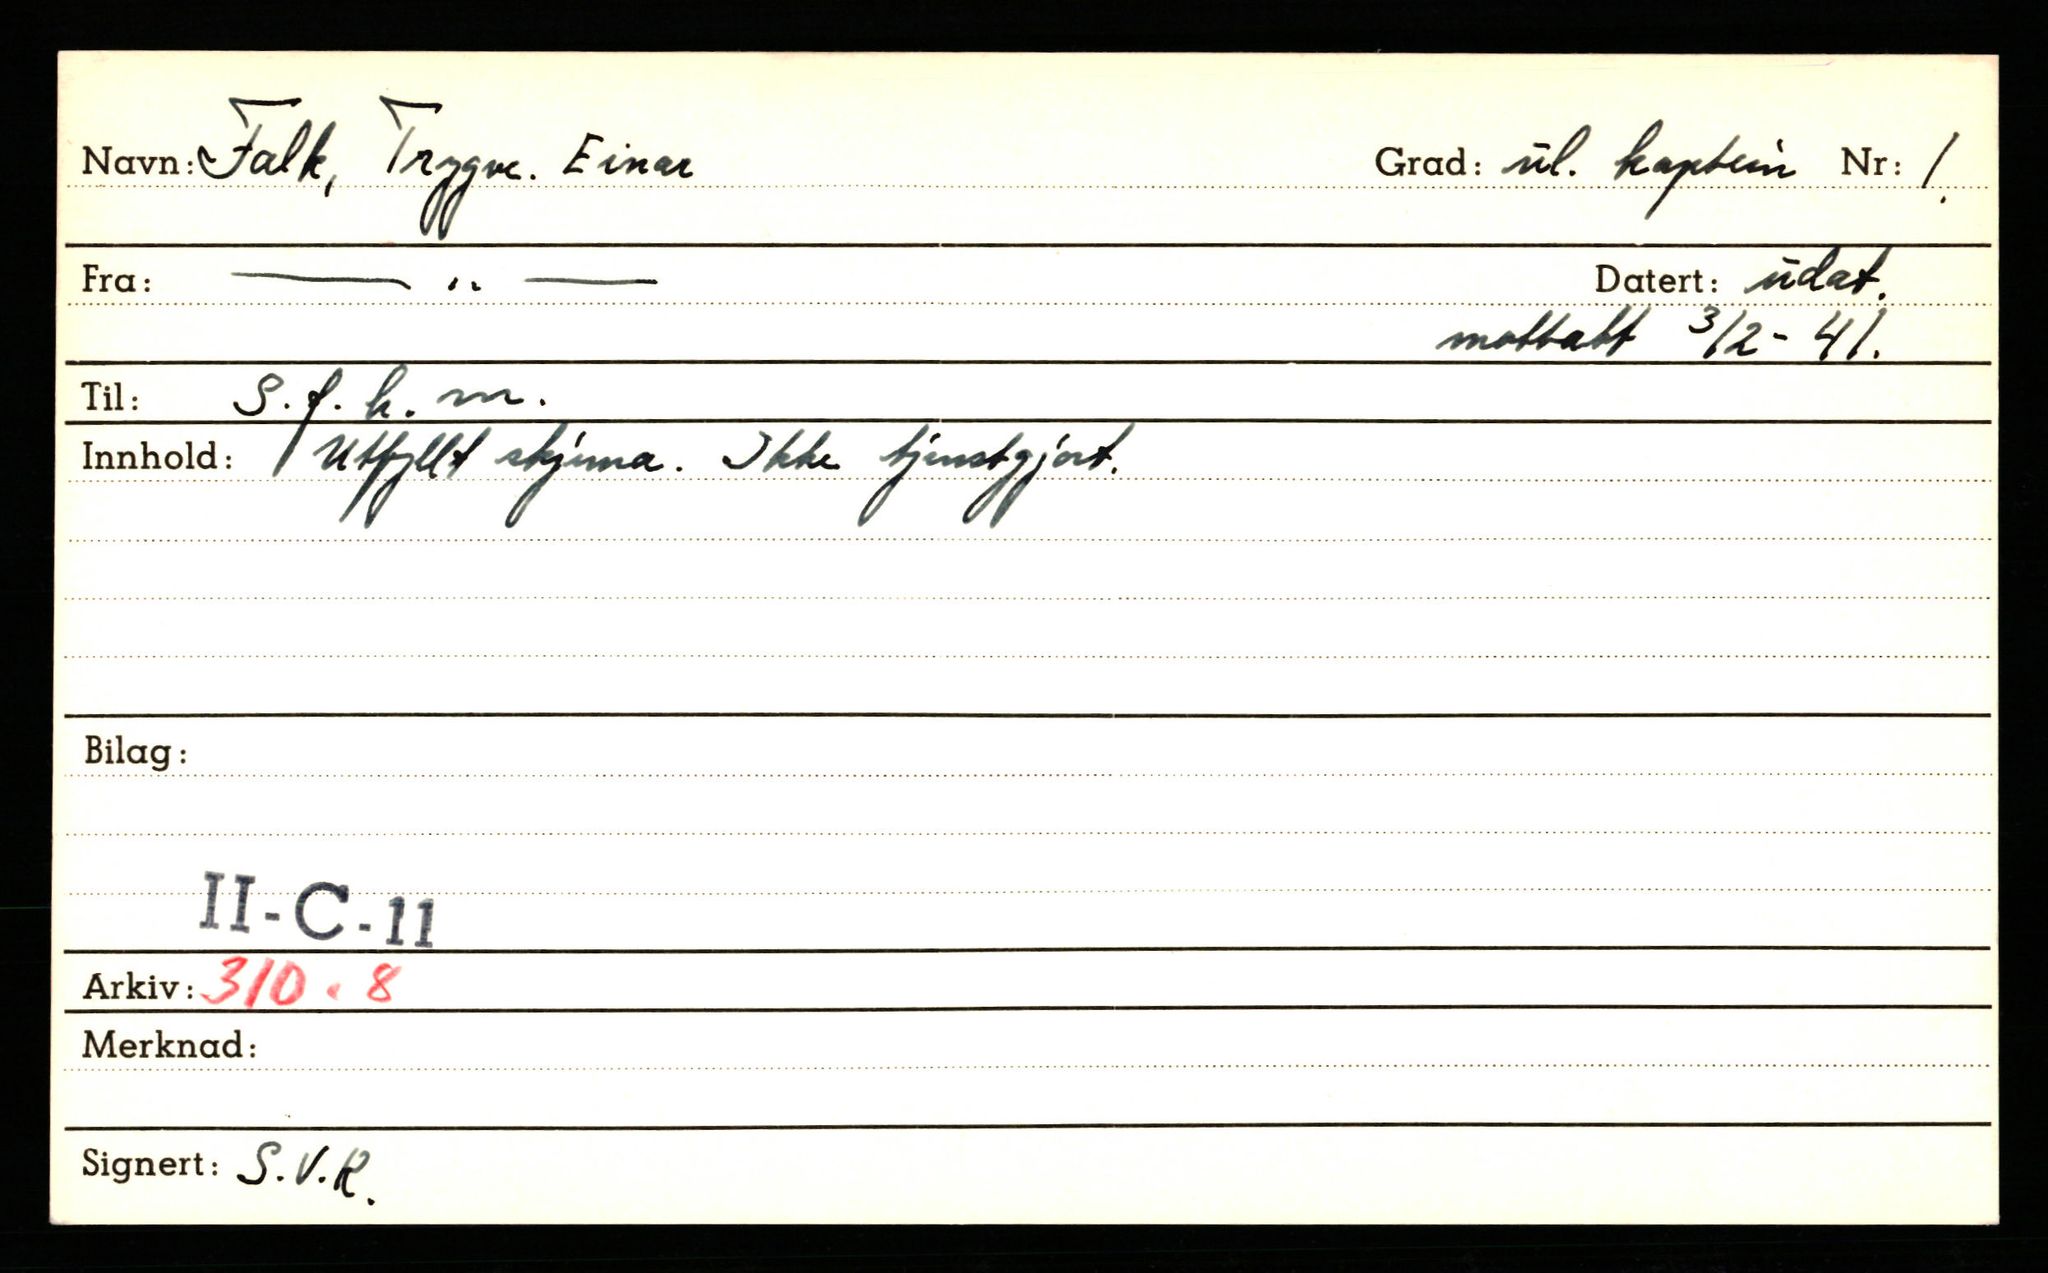 Navn: Falk, Trygve. Einar Grad: ul. kaptein Nr: 1.
Fra: — " — Datert: udat.
mottatt 3/2-41.
Til: S.f.k.m.
Innhold: Utfyllt skjema. Ikke tjenstgjort.
Bilag:
II-C-11
Arkiv: 310.8
Merknad:
Signert: S.V.R.